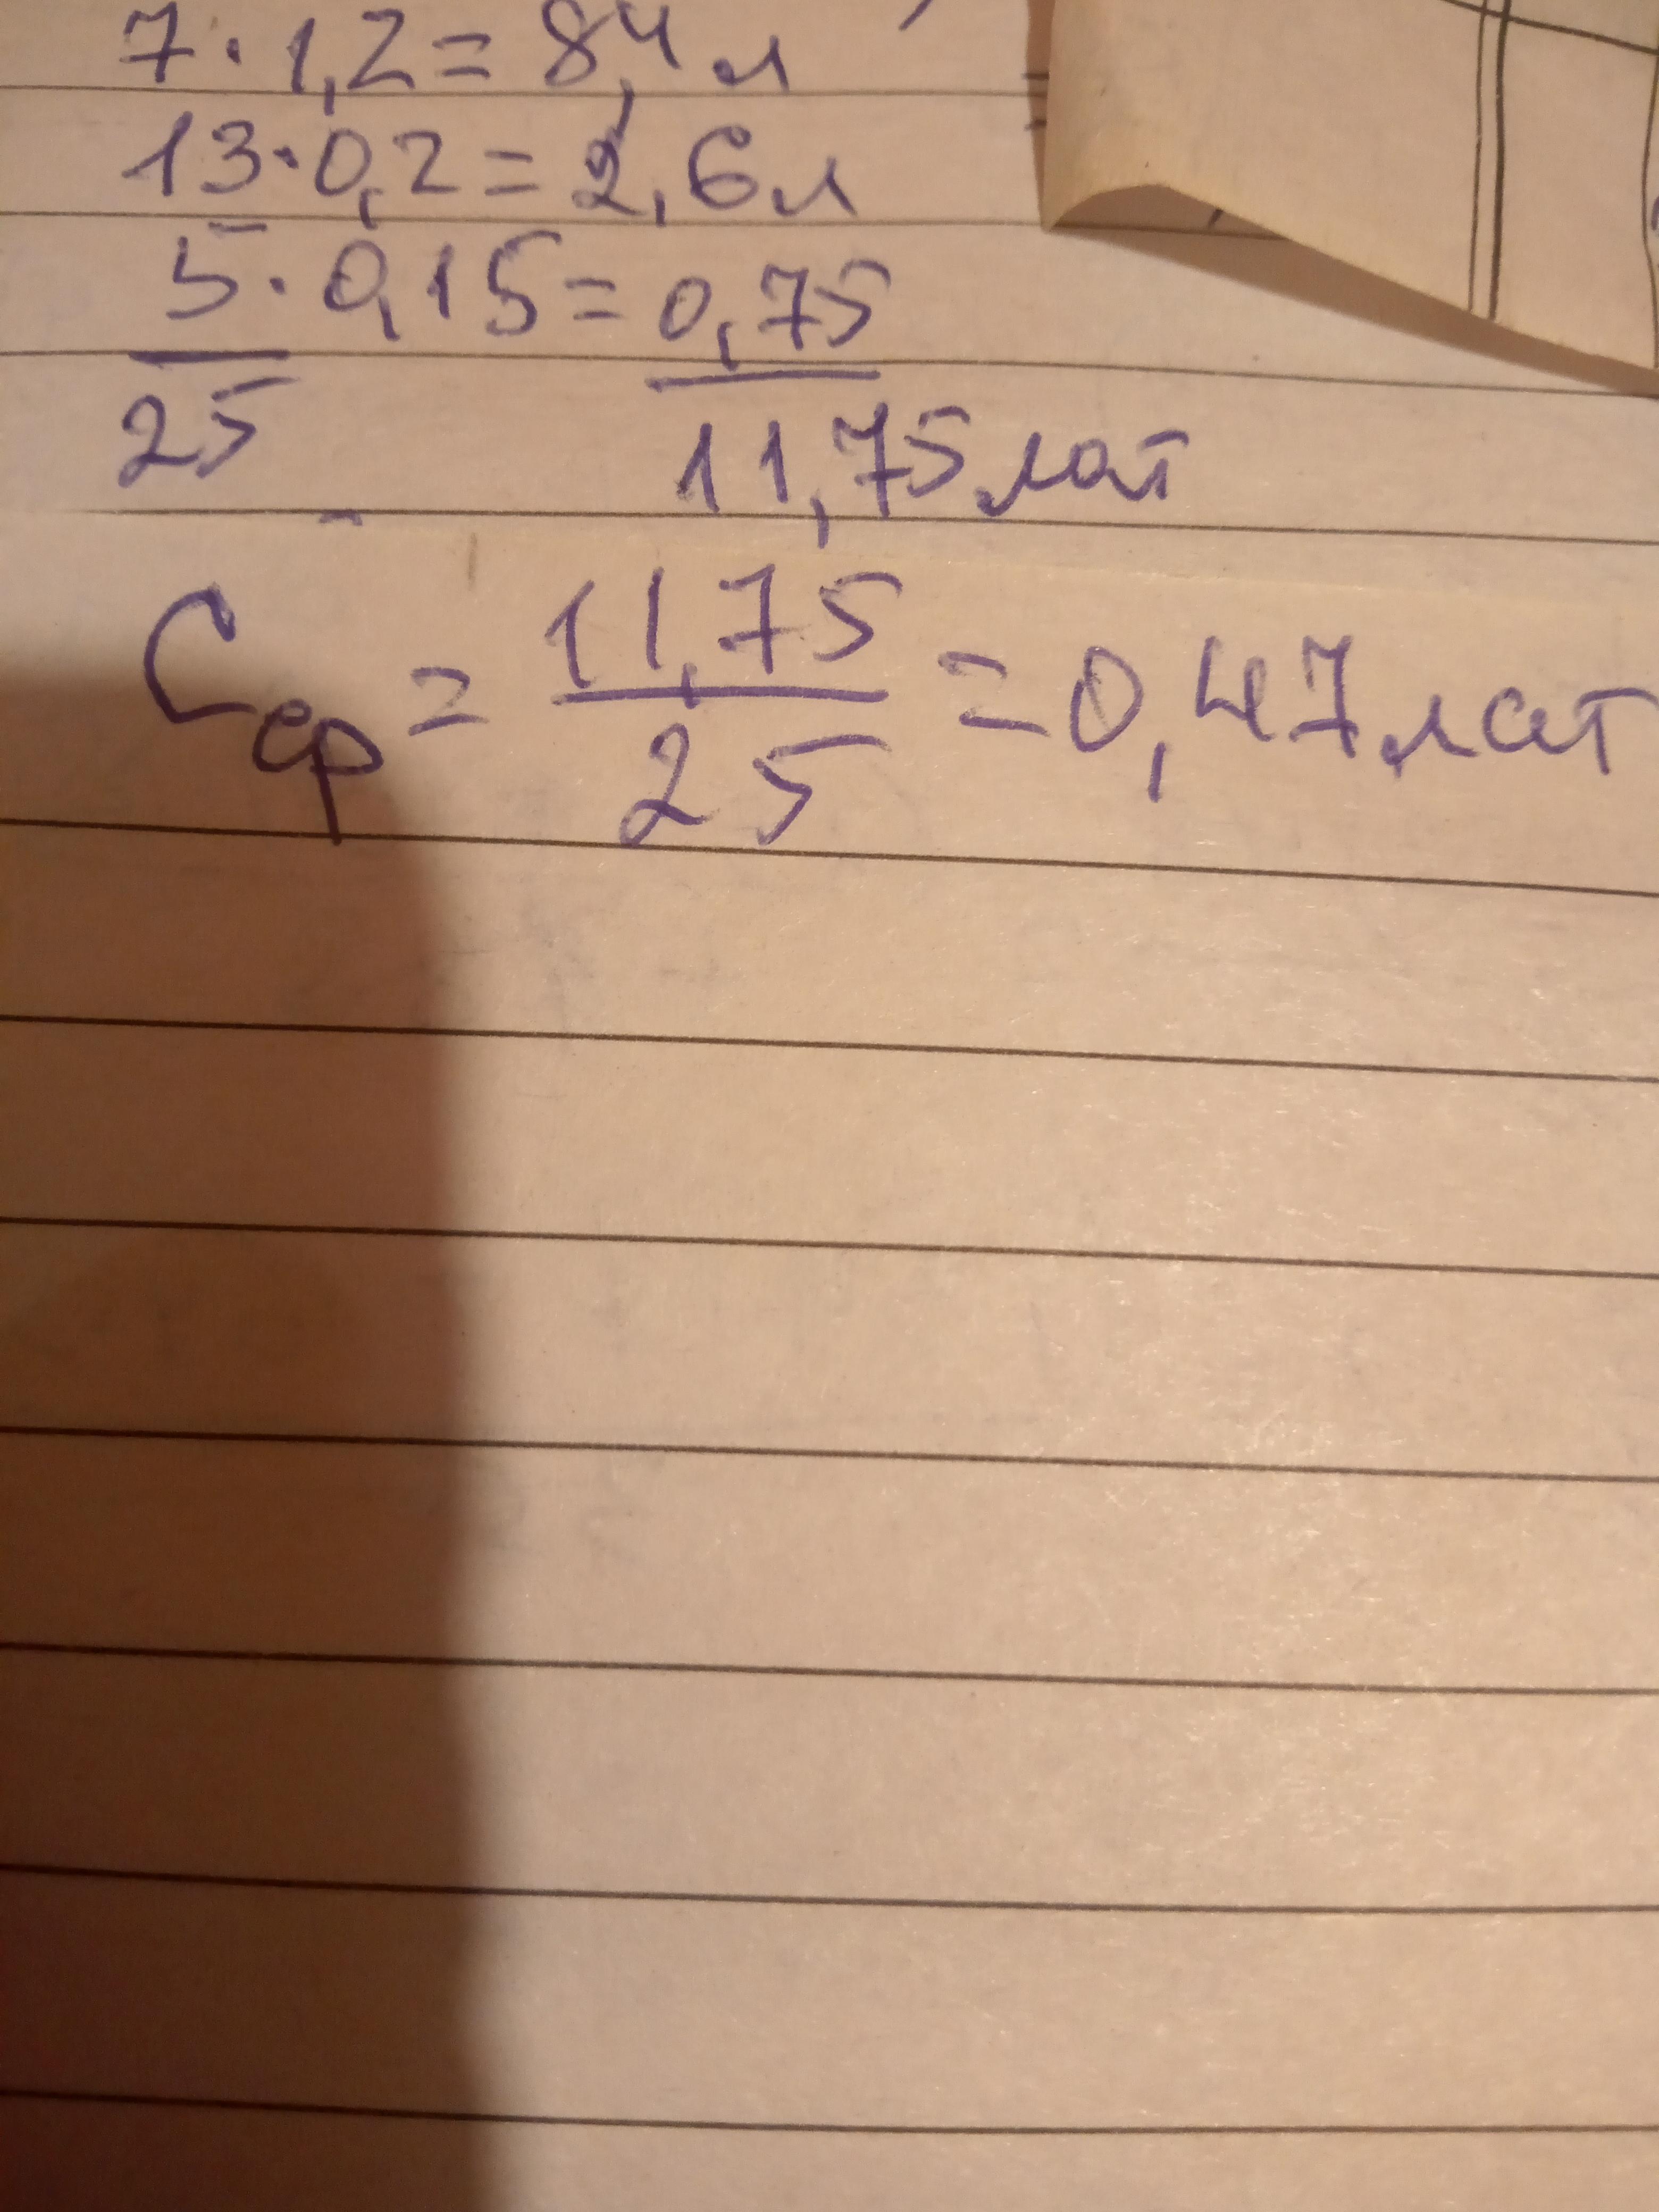 7 · 1,2 = 8,4 л
13 · 0,2 = 2,6 л
5 · 0,15 = 0,75
25 11,75 лат
Сср = 11,75 / 25 = 0,47 лат